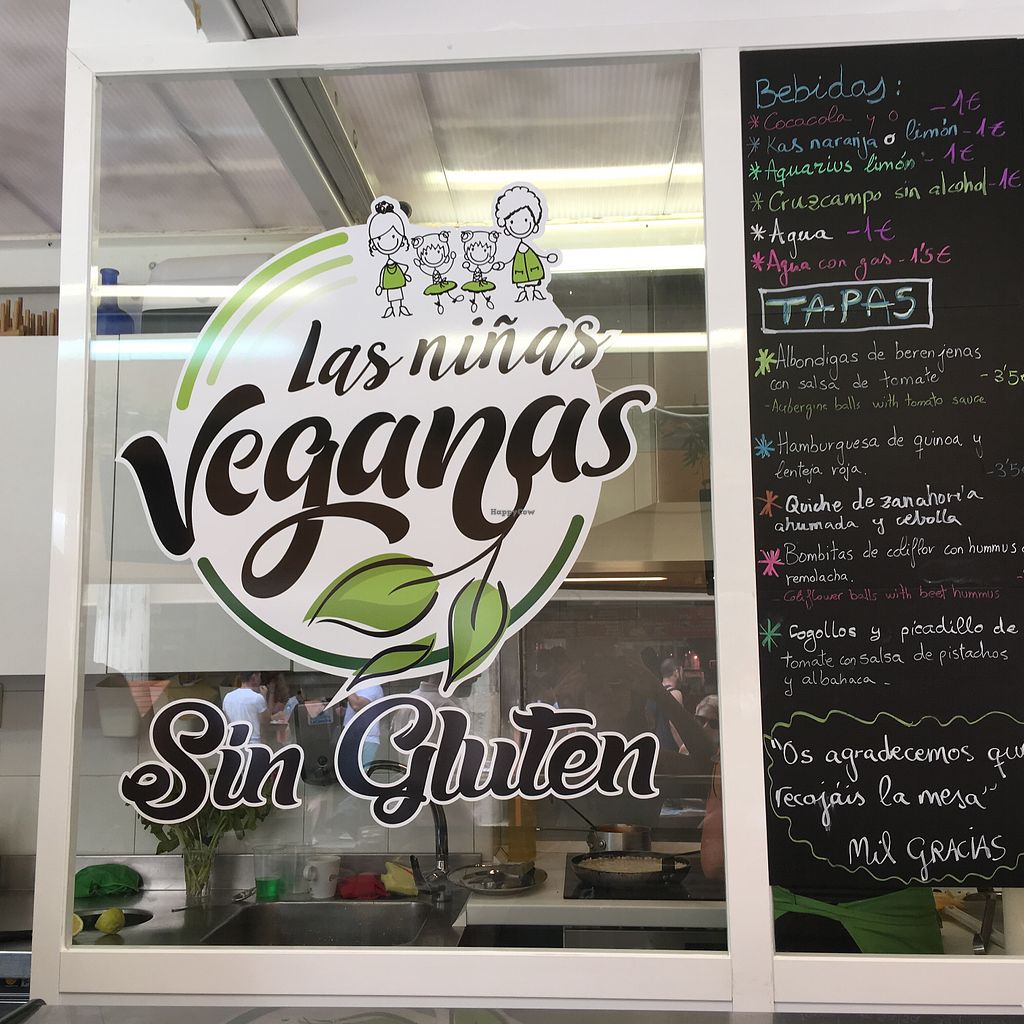 Las niñas
Veganas
HappyCow
Sin Gluten
Bebidas:
* Cocacola y o - 1€
* Kas naranja o limón - 1€
* Aquarius limón - 1€
* Cruzcampo sin alcohol - 1€
* Agua - 1€
* Agua con gas - 1'5€
TAPAS
* Albondigas de berenjenas
con salsa de tomate - 3'5
- Aubergine balls with tomato sauce
* Hamburguesa de quinoa y
lenteja roja. - 3'5
* Quiche de zanahoria
ahumada y cebolla
* Bombitas de coliflor con hummus
remolacha.
- Coliflower balls with beet hummus
* Cogollos y picadillo de
tomate con salsa de pistachos
y albahaca -
"Os agradecemos qu
recojáis la mesa"
Mil GRACIAS